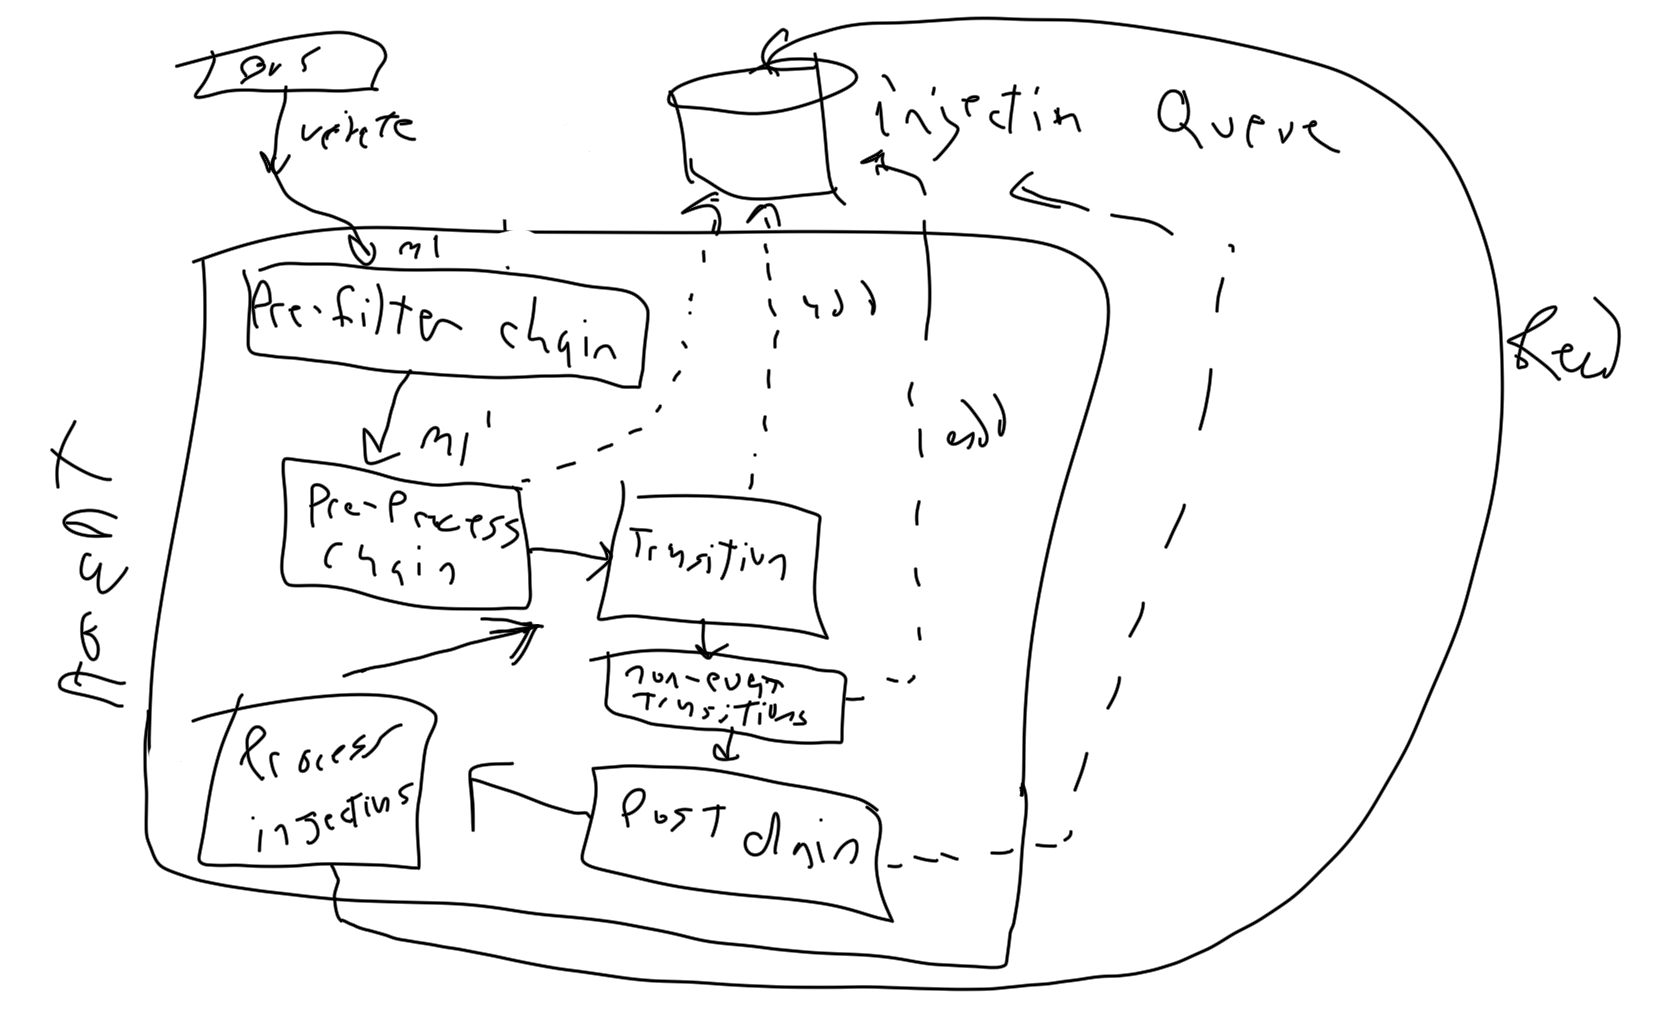 injection Queue
m1
Pre-filter chain
add
Read
m1'
add
Pre-Process
chain
Transition
non-event
Transitions
Process
injections
Post chain